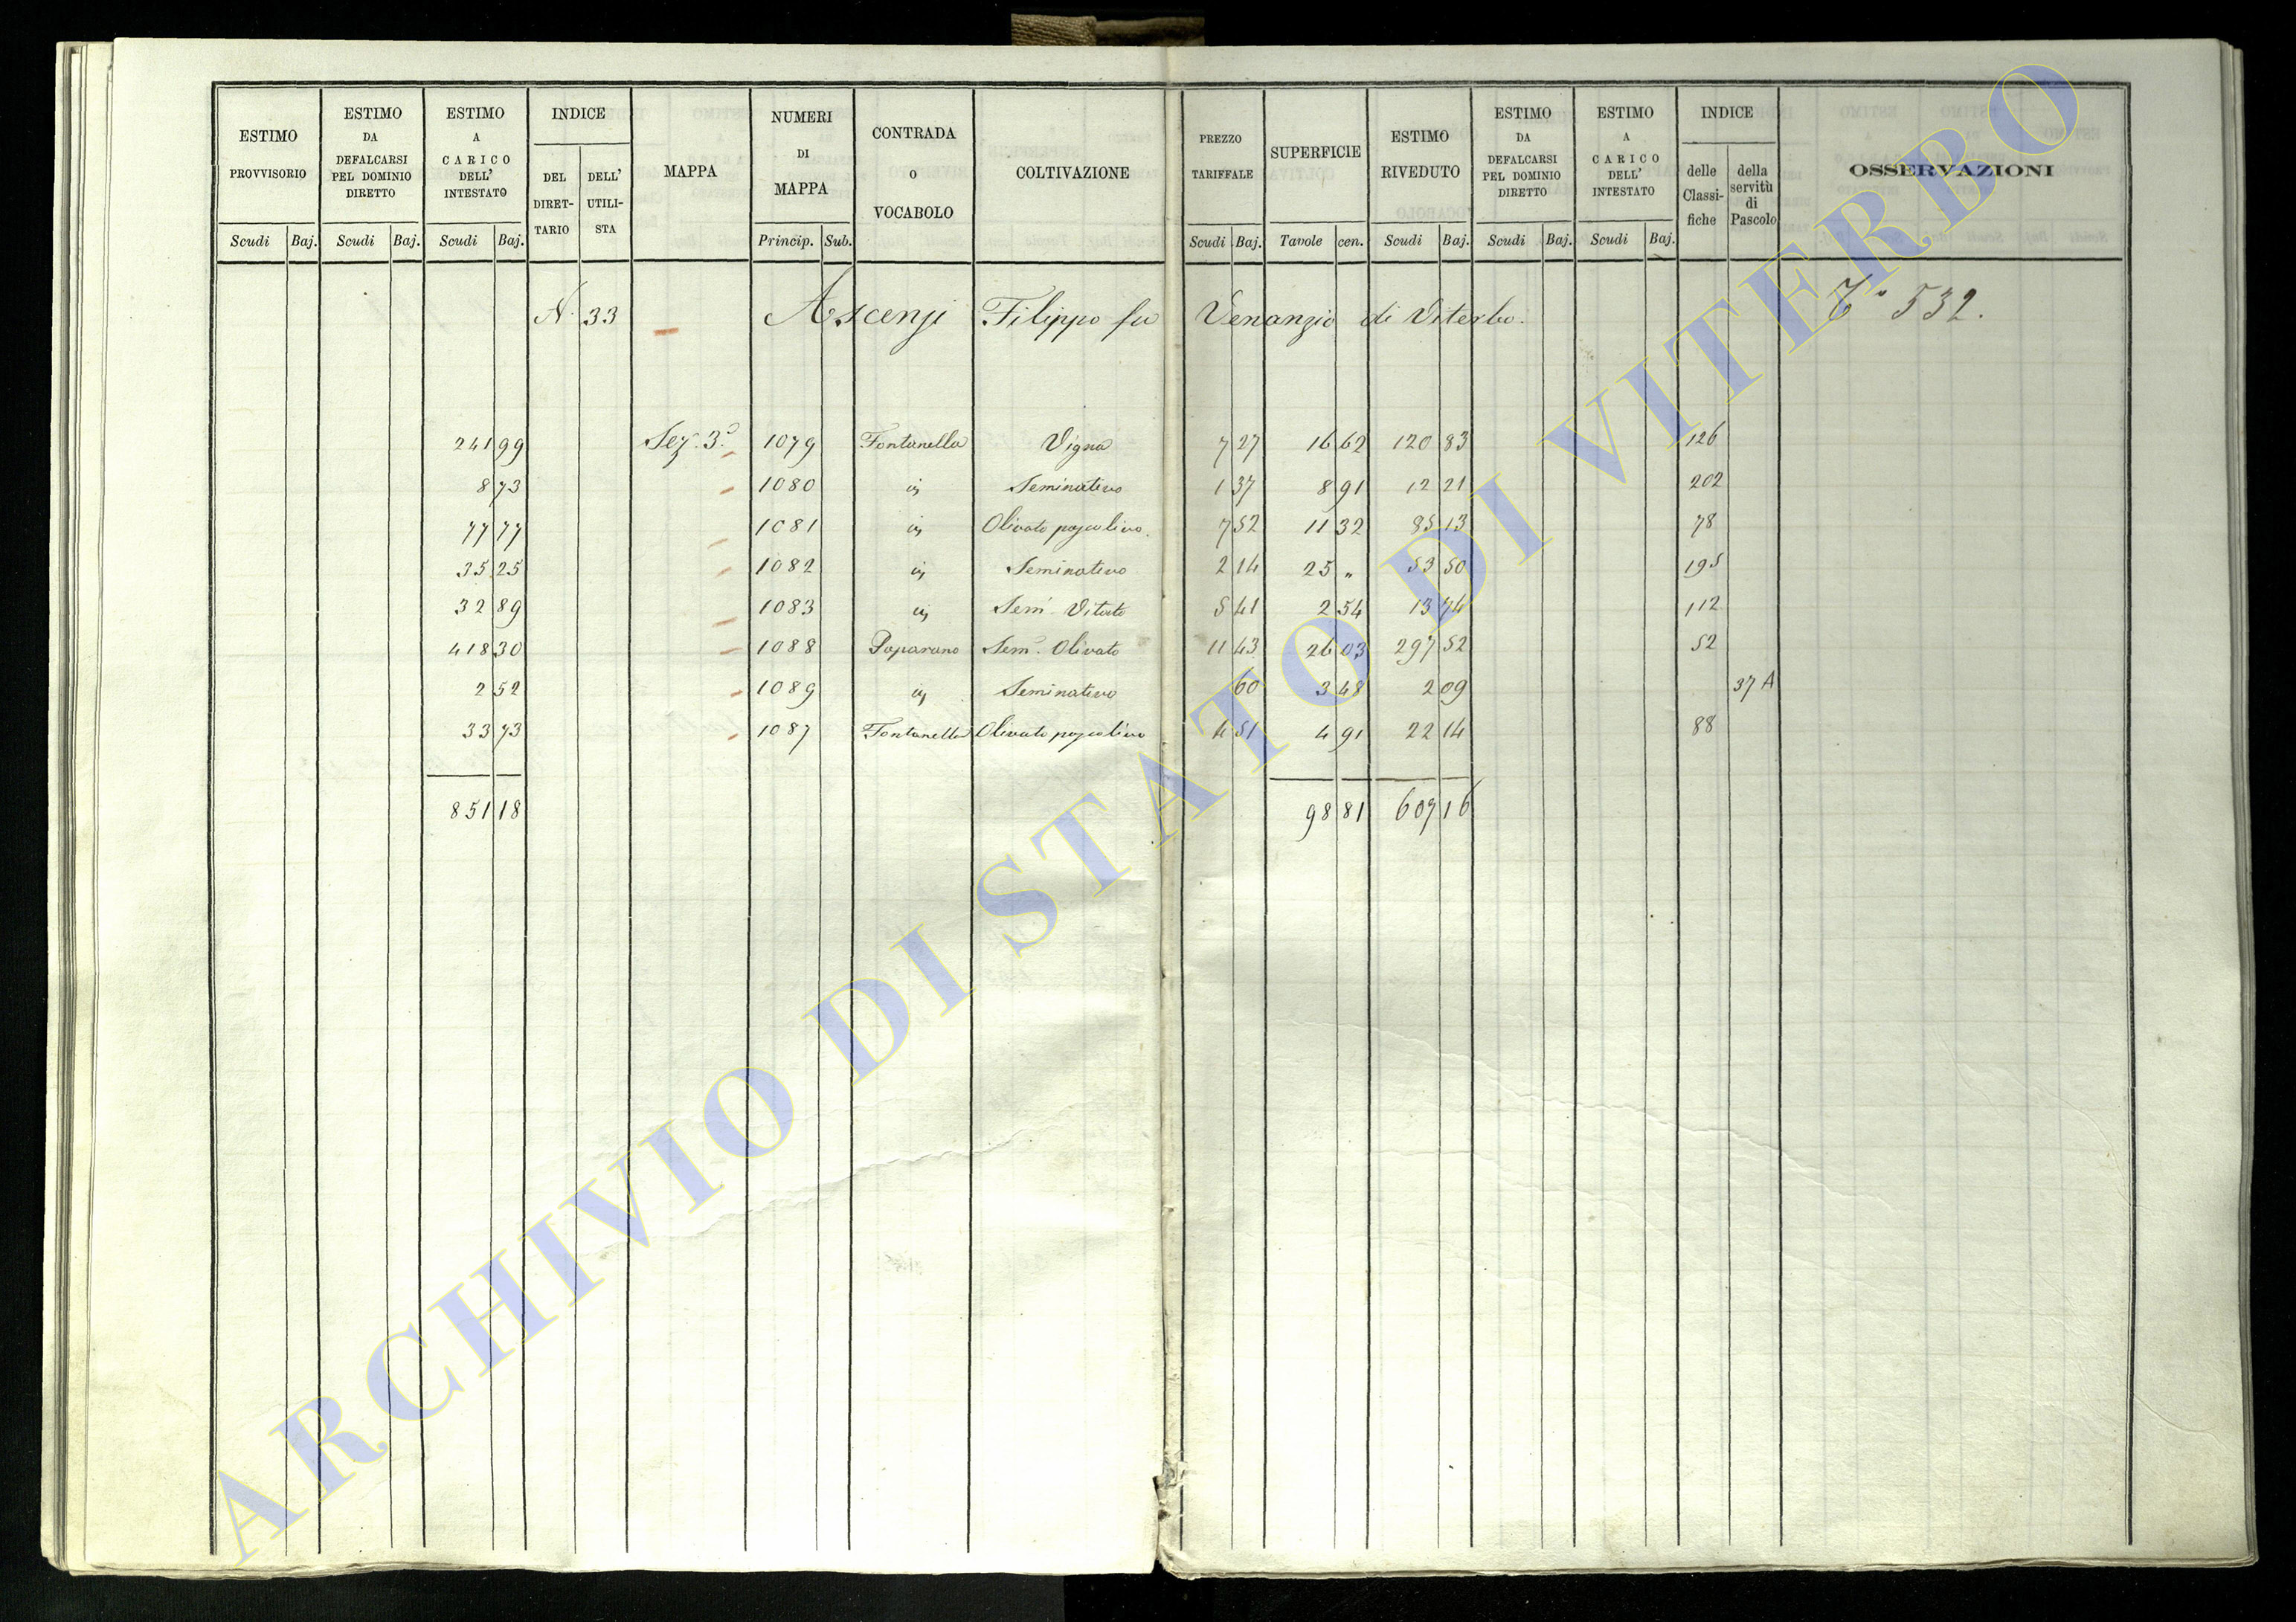 ESTIMO PROVVISORIO | ESTIMO DA DEFALCARSI PEL DOMINIO DIRETTO | ESTIMO A CARICO DELL' INTESTATO | INDICE DEL DIRET-TARIO | DELL' UTILI-STA | MAPPA | NUMERI DI MAPPA | CONTRADA O VOCABOLO | COLTIVAZIONE | PREZZO TARIFFALE | SUPERFICIE | ESTIMO RIVEDUTO | ESTIMO DA DEFALCARSI PEL DOMINIO DIRETTO | ESTIMO A CARICO DELL' INTESTATO | INDICE delle Classi-fiche | della servitù di Pascolo | OSSERVAZIONI
Scudi | Baj. | Scudi | Baj. | Scudi | Baj. | Princip. | Sub. | Scudi | Baj. | Tavole | cen. | Scudi | Baj. | Scudi | Baj. | Scudi | Baj.
N. 33 Ascenzi Filippo fu Venanzio di Viterbo. 532.
241 99 Sez. 3ª 1079 Fontanella Vigna 7 27 16 62 120 83 126
8 73 1080 in Seminativo 1 37 8 91 12 21 202
77 77 1081 in Olivato pascolivo. 7 52 11 32 85 13 78
35 25 1082 in Seminativo 2 14 25 " 53 50 195
32 89 1083 in Sem. Vitato 5 41 2 54 13 74 112
418 30 1088 Paparano Sem. Olivato 11 43 26 03 297 52 52
2 52 1089 in Seminativo 60 3 48 2 09 37 A
33 73 1087 Fontanella Olivato pascolivo 4 51 4 91 22 14 88
851 18 98 81 607 16
ARCHIVIO DI STATO DI VITERBO